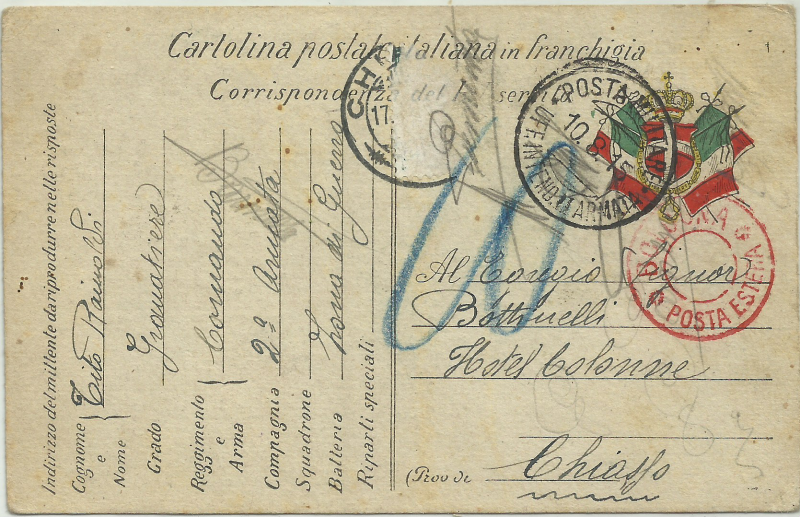 Cartolina postale italiana in franchigia
Corrispondenza del R. esercito
Indirizzo del mittente da riprodurre nelle risposte
Cognome e Nome
Tito Rainoldi
Grado
Reggimento e Arma
Comando
Compagnia
2ª Armata
Squadrone
Zona di Guerra
Batteria
Riparti speciali
POSTA MILITARE
10.8.15
ARMATA
CH
17.
CENSURA
POSTA ESTERA
Al
Signor
Bottinelli
Hotel Colonne
(Prov di
Chiasso